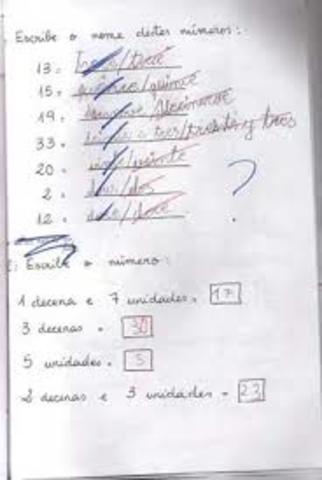 Escribe o nome destes números:
13. trece/trece
15. quince/quince
19.
33. trinta e tres/treinta y tres
20. vinte/veinte
2. dous/dos
12. doce/doce
?
Escribe o número:
1 decena e 7 unidades. 17
3 decenas. 30
5 unidades. 5
2 decenas e 3 unidades. 23